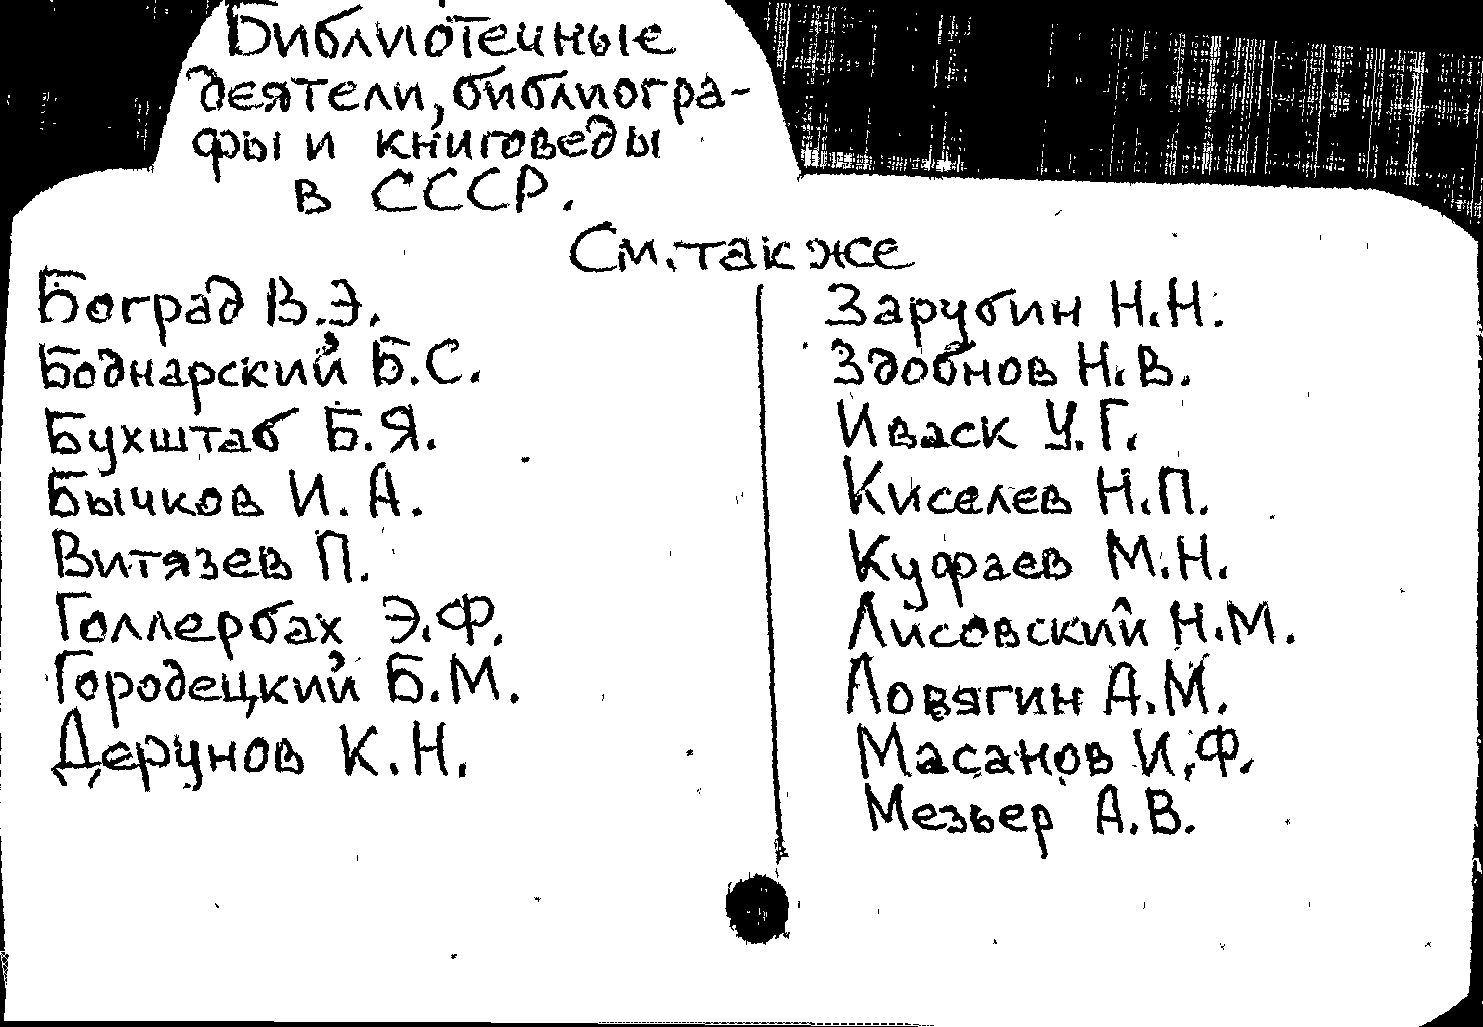 Библиотечные
деятели, библиогра-
фы и книговеды
в СССР.
См. также
Боград В.Э.
Боднарский Б.С.
Бухштаб Б.Я.
Бычков И.А.
Витязев П.
Голлербах Э.Ф.
Городецкий Б.М.
Дерунов К.Н.
Зарубин Н.Н.
Здобнов Н.В.
Иваск У.Г.
Киселев Н.П.
Куфаев М.Н.
Лисовский Н.М.
Ловягин А.М.
Масанов И.Ф.
Мезьер А.В.